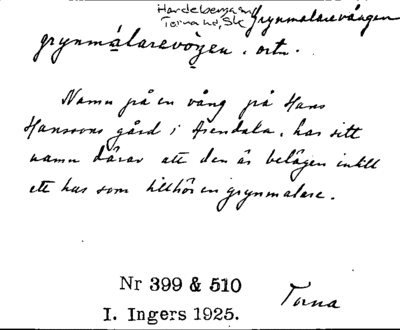 Hardeberga sn
Torna hd, Sk
Grynmalarevången
grynmálarevọ̀ŋen. ortn.
Namn på en vång på Hans
Hanssons gård i Arendala, har sitt
namn därav att den är belägen intill
ett hus som tillhör en grynmalare.
Nr 399 & 510
I. Ingers 1925.
Torna